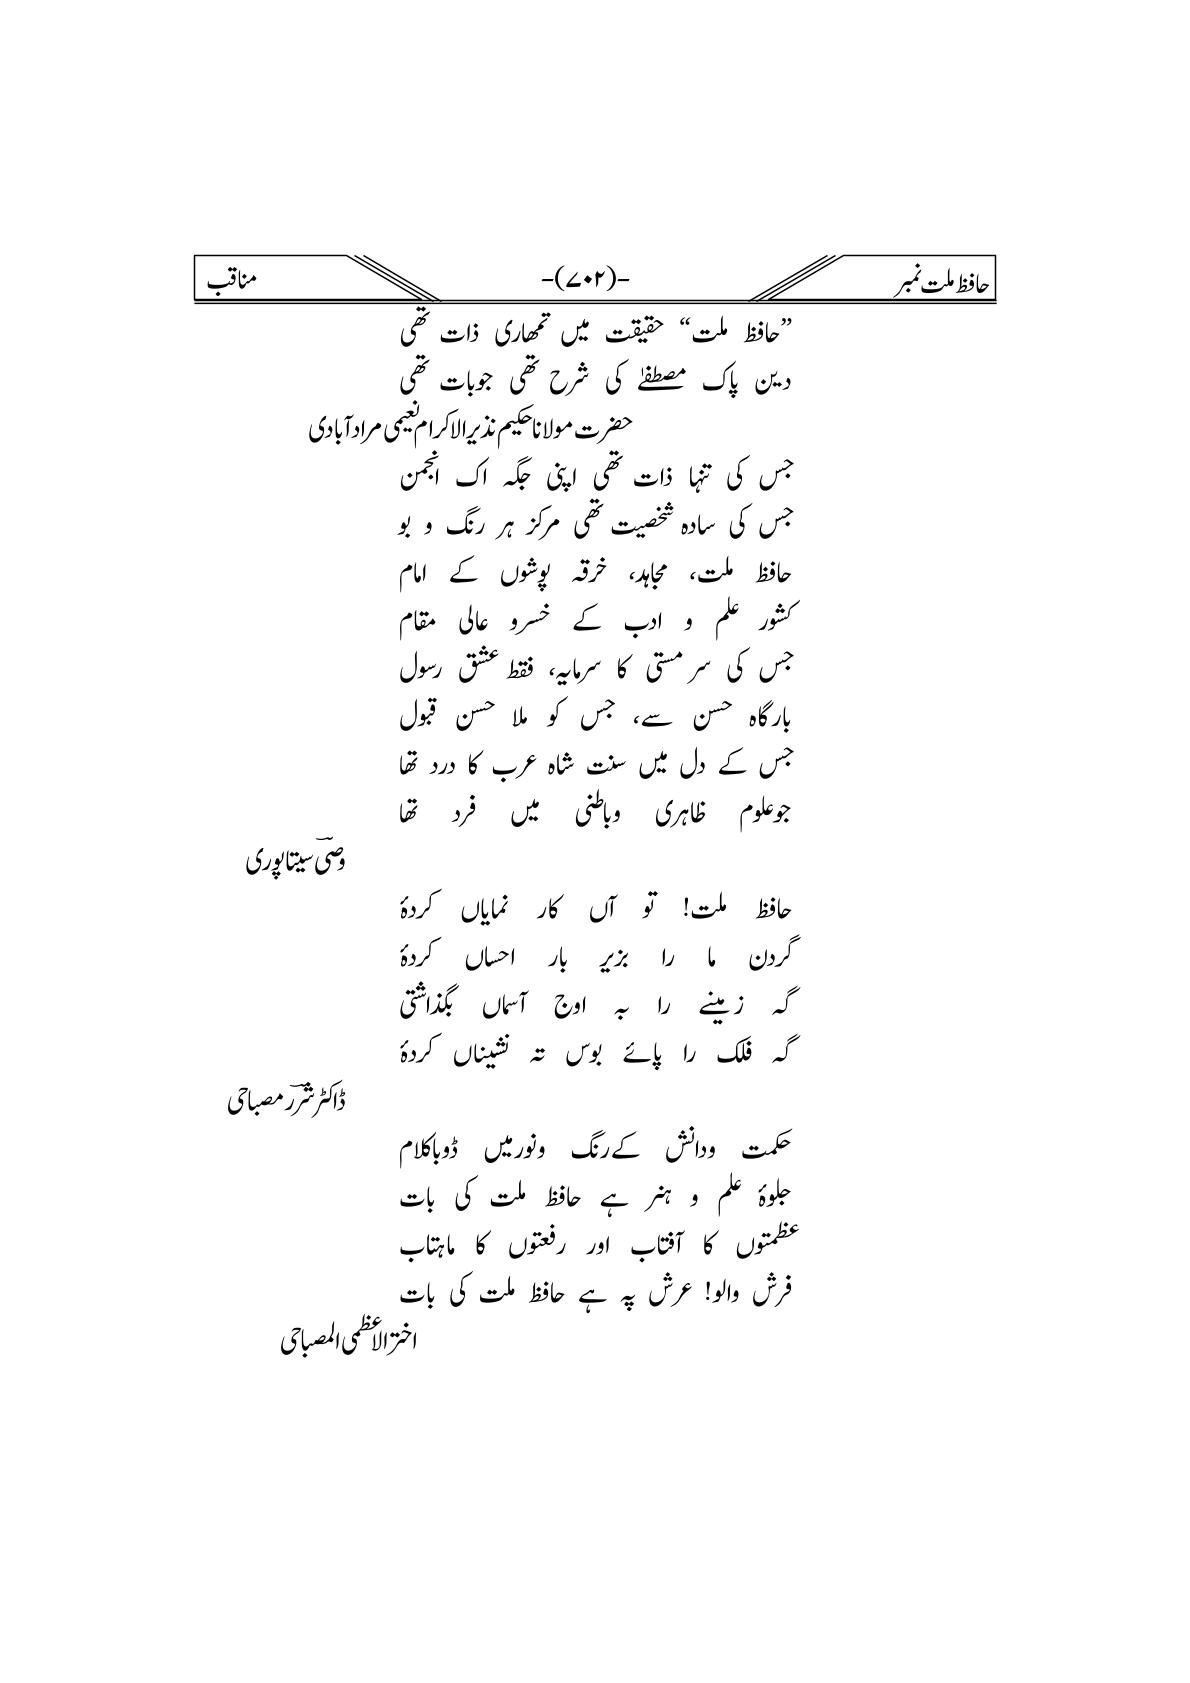 حافظ ملت نمبر -(۷۰۲)- مناقب
”حافظ ملت“ حقیقت میں تمھاری ذات تھی
دین پاک مصطفےٰ کی شرح تھی جوبات تھی
حضرت مولانا حکیم نذیر الاکرام نعیمی مرادآبادی
جس کی تنہا ذات تھی اپنی جگہ اک انجمن
جس کی سادہ شخصیت تھی مرکز ہر رنگ و بو
حافظ ملت، مجاہد، خرقہ پوشوں کے امام
کشور علم و ادب کے خسرو عالی مقام
جس کی سر مستی کا سرمایہ، فقط عشق رسول
بارگاہ حسن سے، جس کو ملا حسن قبول
جس کے دل میں سنت شاہ عرب کا درد تھا
جوعلوم ظاہری وباطنی میں فرد تھا
وصیؔ سیتاپوری
حافظ ملت! تو آں کار نمایاں کردۂ
گردن ما را بزیر بار احساں کردۂ
گہ زمینے را بہ اوج آسماں بگذاشتی
گہ فلک را پائے بوس تہ نشیناں کردۂ
ڈاکٹر شررؔ مصباحی
حکمت ودانش کے رنگ ونورمیں ڈوباکلام
جلوۂ علم و ہنر ہے حافظ ملت کی بات
عظمتوں کا آفتاب اور رفعتوں کا ماہتاب
فرش والو! عرش پہ ہے حافظ ملت کی بات
اختر الاعظمی المصباحی